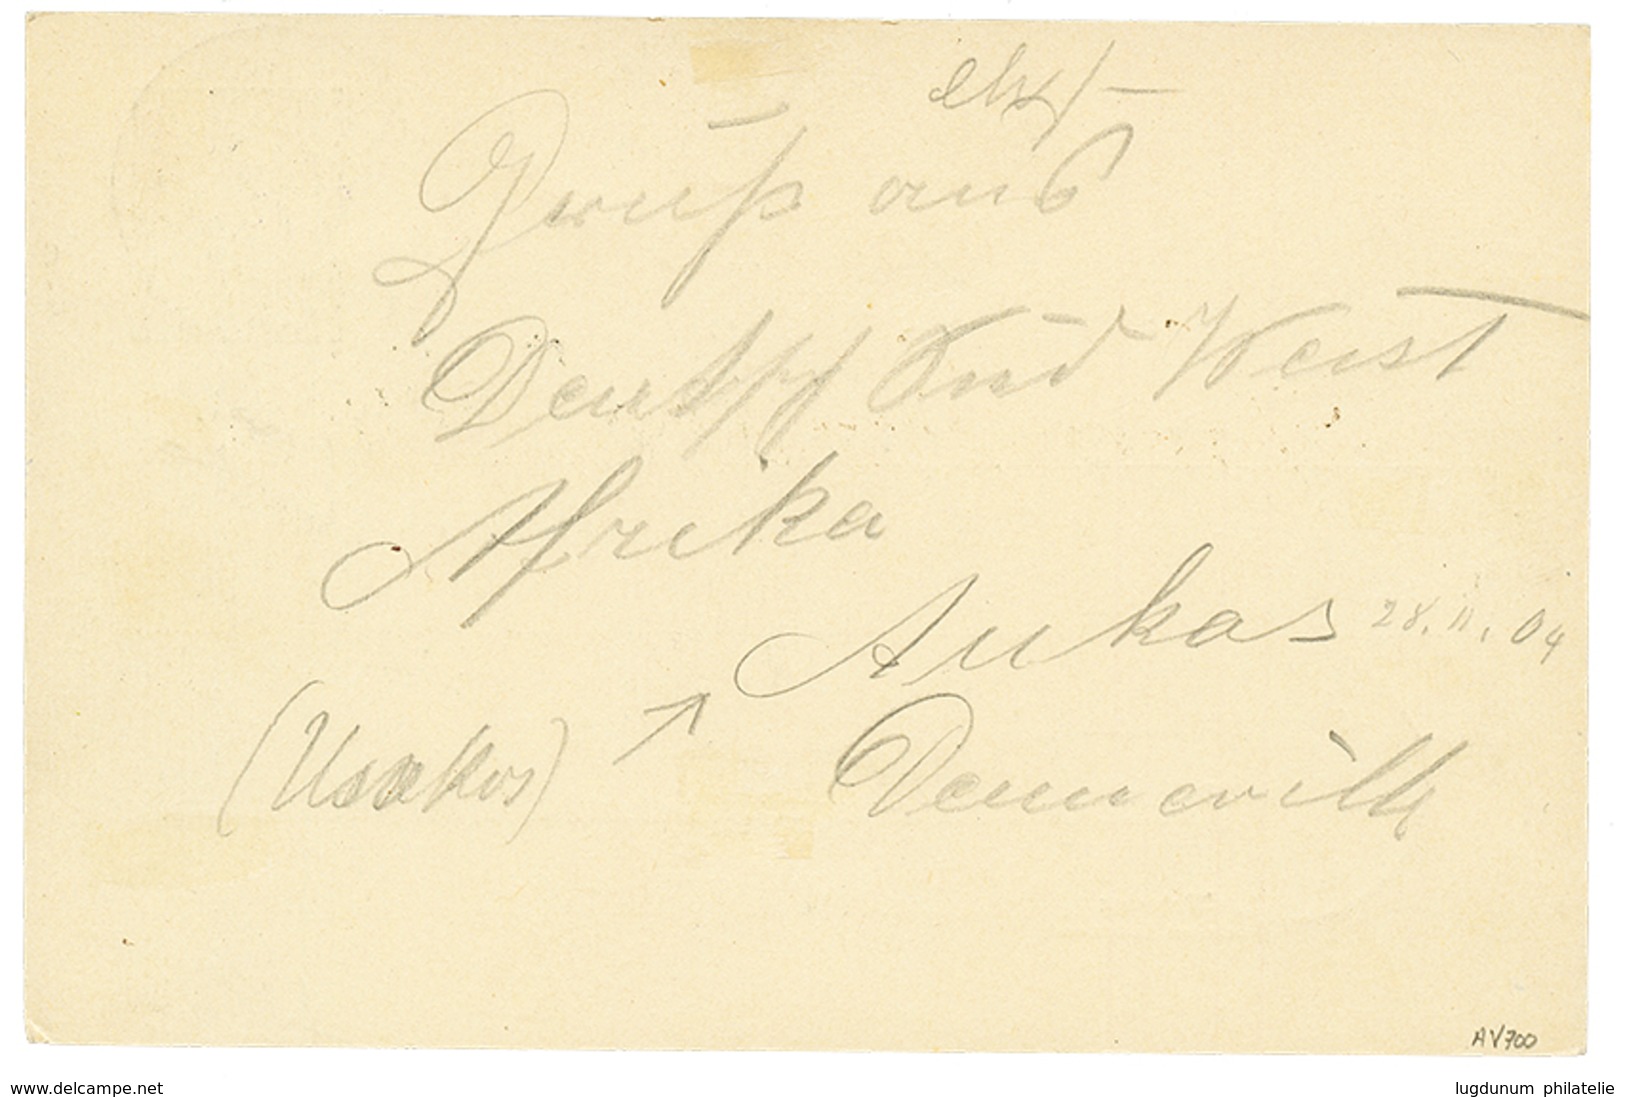 Gruß aus
Deutsch Süd West
Afrika
Aukas 28. 11. 04
(Usakos) ↗ Denneville
AV700
www.delcampe.net
lugdunum philatelie